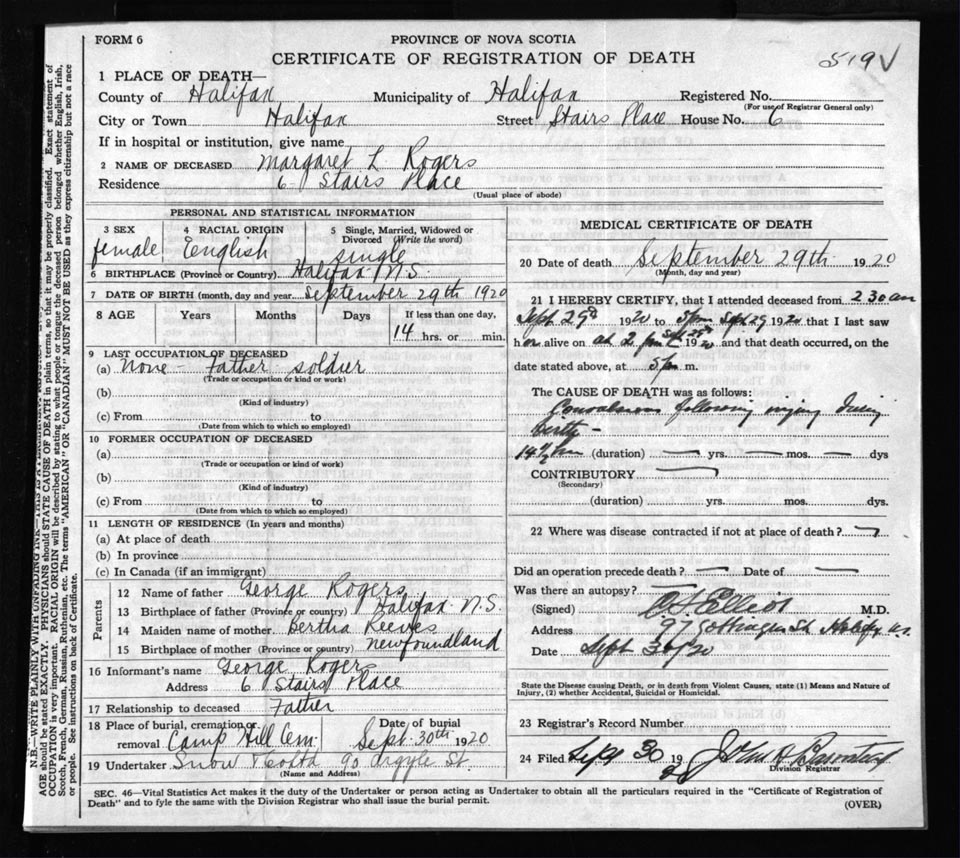 FORM 6
PROVINCE OF NOVA SCOTIA
CERTIFICATE OF REGISTRATION OF DEATH
519 V
1 PLACE OF DEATH—
County of Halifax Municipality of Halifax Registered No.
(For use of Registrar General only)
City or Town Halifax Street Stairs Place House No. 6
If in hospital or institution, give name
2 NAME OF DECEASED Margaret L. Rogers
Residence 6 Stairs Place
(Usual place of abode)
PERSONAL AND STATISTICAL INFORMATION
3 SEX 4 RACIAL ORIGIN 5 Single, Married, Widowed or
Divorced (Write the word)
female English single
6 BIRTHPLACE (Province or Country). Halifax N.S.
7 DATE OF BIRTH (month, day and year) September 29th 1920
8 AGE Years Months Days If less than one day,
14 hrs. or min.
9 LAST OCCUPATION OF DECEASED
(a) None - Father - soldier
(Trade or occupation or kind of work)
(b)
(Kind of industry)
(c) From to
(Date from which to which so employed)
10 FORMER OCCUPATION OF DECEASED
(a)
(Trade or occupation or kind of work)
(b)
(Kind of industry)
(c) From to
(Date from which to which so employed)
11 LENGTH OF RESIDENCE (In years and months)
(a) At place of death
(b) In province
(c) In Canada (if an immigrant)
Parents
12 Name of father George Rogers
13 Birthplace of father (Province or country) Halifax N.S.
14 Maiden name of mother Bertha Reeves
15 Birthplace of mother (Province or country) Newfoundland
16 Informant's name George Rogers
Address 6 Stairs Place
17 Relationship to deceased Father
18 Place of burial, cremation or Date of burial
removal Camp Hill Cem. Sept. 30th 1920
19 Undertaker Snow & Costa 90 Argyle St.
(Name and Address)
MEDICAL CERTIFICATE OF DEATH
20 Date of death September 29th 1920
(Month, day and year)
21 I HEREBY CERTIFY, that I attended deceased from 2 30 am
Sept 29th 1920 to 5pm Sept 29 1920 that I last saw
her alive on at 2 pm 1920 and that death occurred, on the
date stated above, at 5 p m.
The CAUSE OF DEATH was as follows:
Convulsions following injury during
birth -
14½ hrs (duration) yrs. mos. dys
CONTRIBUTORY
(Secondary)
(duration) yrs. mos. dys.
22 Where was disease contracted if not at place of death?
Did an operation precede death? Date of
Was there an autopsy?
(Signed) Elliot M.D.
Address 97 Gottingen St Halifax N.S.
Date Sept 30/20
State the Disease causing Death, or in death from Violent Causes, state (1) Means and Nature of
Injury, (2) whether Accidental, Suicidal or Homicidal.
23 Registrar's Record Number
24 Filed Sept 30 19 John A
Division Registrar
SEC. 46—Vital Statistics Act makes it the duty of the Undertaker or person acting as Undertaker to obtain all the particulars required in the "Certificate of Registration of
Death" and to fyle the same with the Division Registrar who shall issue the burial permit.
(OVER)
AGE should be stated EXACTLY. PHYSICIANS should STATE CAUSE OF DEATH in plain terms, so that it may be properly classified. Exact statement of
OCCUPATION is very important. RACIAL ORIGIN will be described by stating to what people or tongue the deceased person belonged whether English, Irish,
Scotch, French, German, Russian, Ruthenian, etc. The terms "AMERICAN" OR "CANADIAN" MUST NOT BE USED as they express citizenship but not a race
or people. See instructions on back of Certificate.